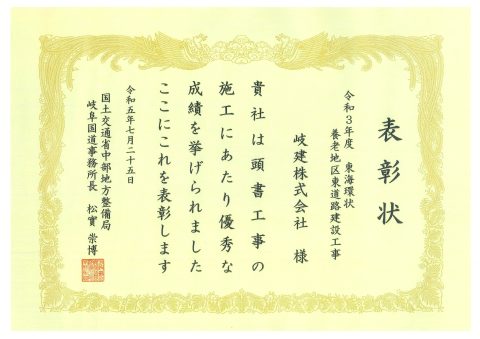 表彰状
令和3年度 東海環状
養老地区東道路建設工事
岐建株式会社 様
貴社は頭書工事の
施工にあたり優秀な
成績を挙げられました
ここにこれを表彰します
令和五年七月二十五日
国土交通省中部地方整備局
岐阜国道事務所長 松實 崇博